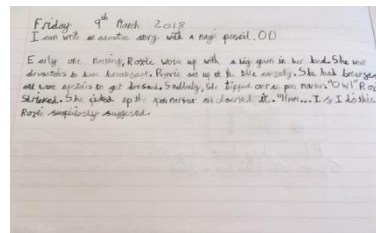 Friday 9th March 2018
I can write a creative story with a magic pencil. OD
Early one morning, Roxie woke up with a big yawn in her bed. She went
downstairs to have breakfast. Roxie sat up at the table
and went upstairs to get dressed. Suddenly, she tripped over a pen marker. "OW!"
shrieked. She picked up the pen marker and observed it. "Hmm... I
suspiciously suggested.